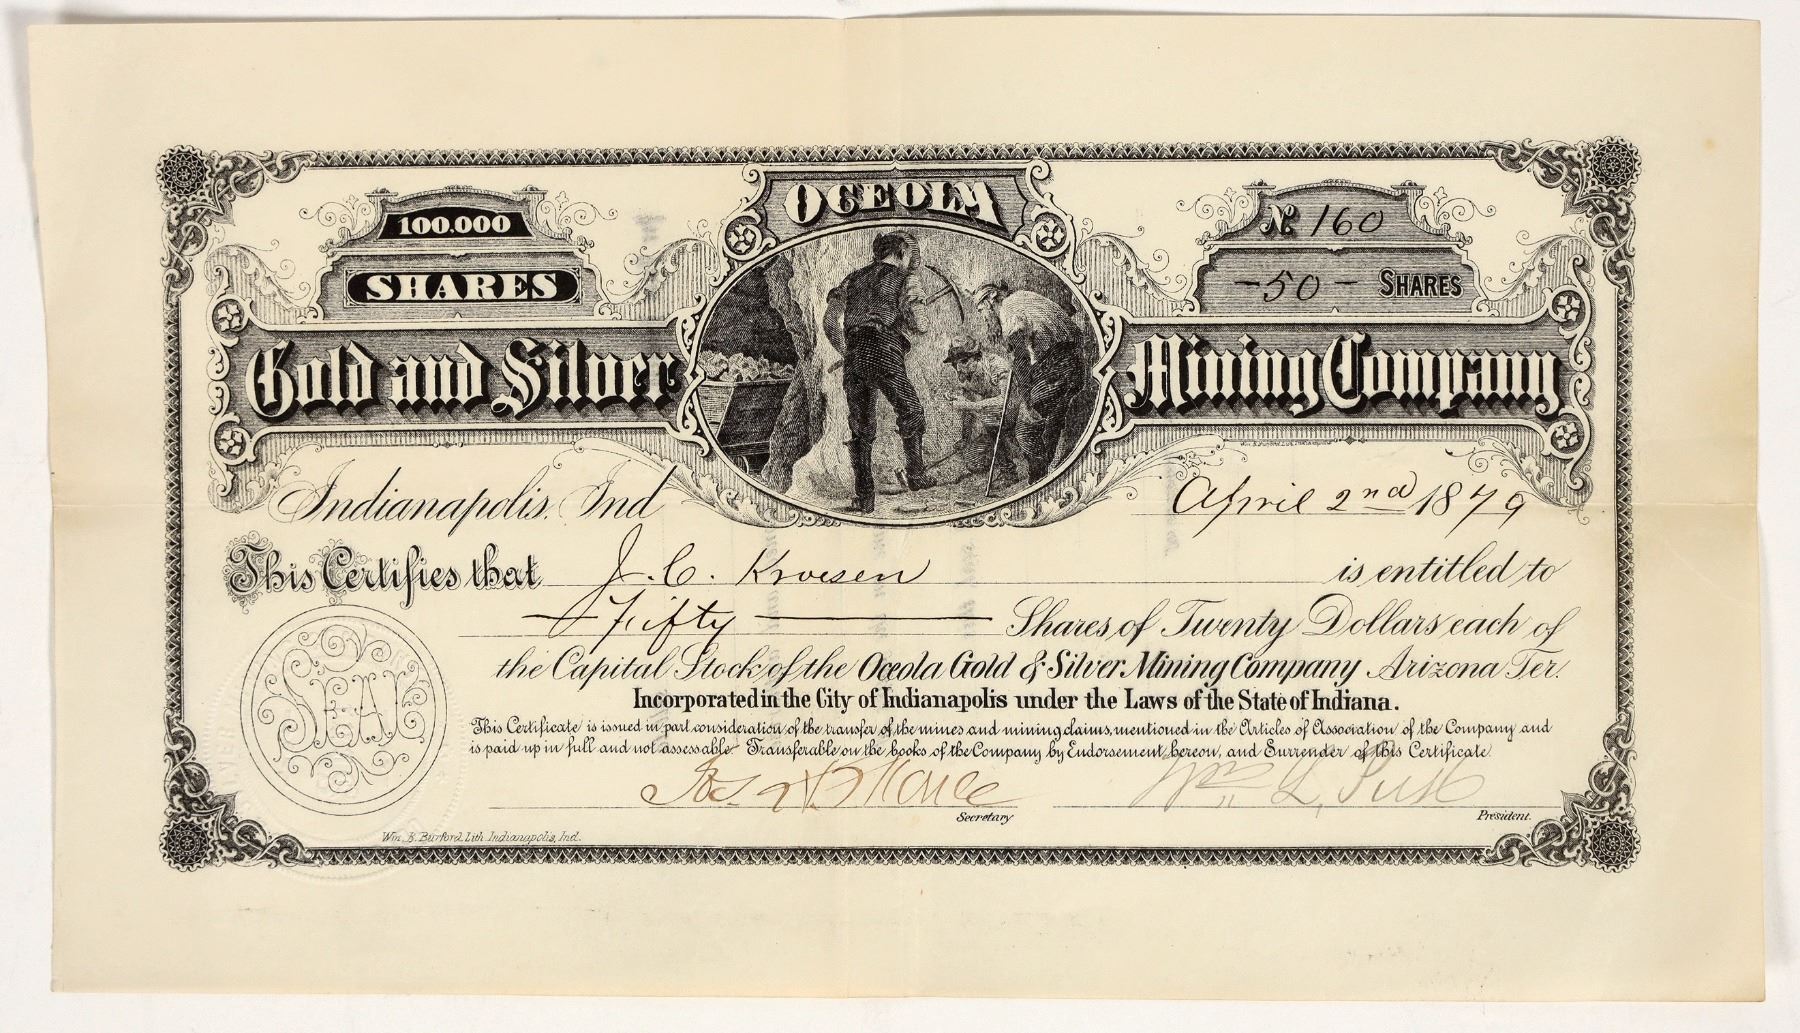 OCEOLA
100.000
SHARES
No 160
- 50 - SHARES
Gold and Silver Mining Company
Wm. B. Burford, Lith. Indianapolis
Indianapolis. Ind April 2nd 1879
This Certifies that J. C. Kroesen is entitled to
Fifty Shares of Twenty Dollars each of
the Capital Stock of the Oceola Gold & Silver Mining Company Arizona Ter.
Incorporated in the City of Indianapolis under the Laws of the State of Indiana.
This Certificate is issued in part consideration of the transfer of the mines and mining claims, mentioned in the Articles of Association of the Company and
is paid up in full and not assessable. Transferable on the books of the Company by Endorsement hereon, and Surrender of this Certificate.
SEAL
Secretary
Wm L,
President.
Wm. B. Burford, Lith. Indianapolis, Ind.